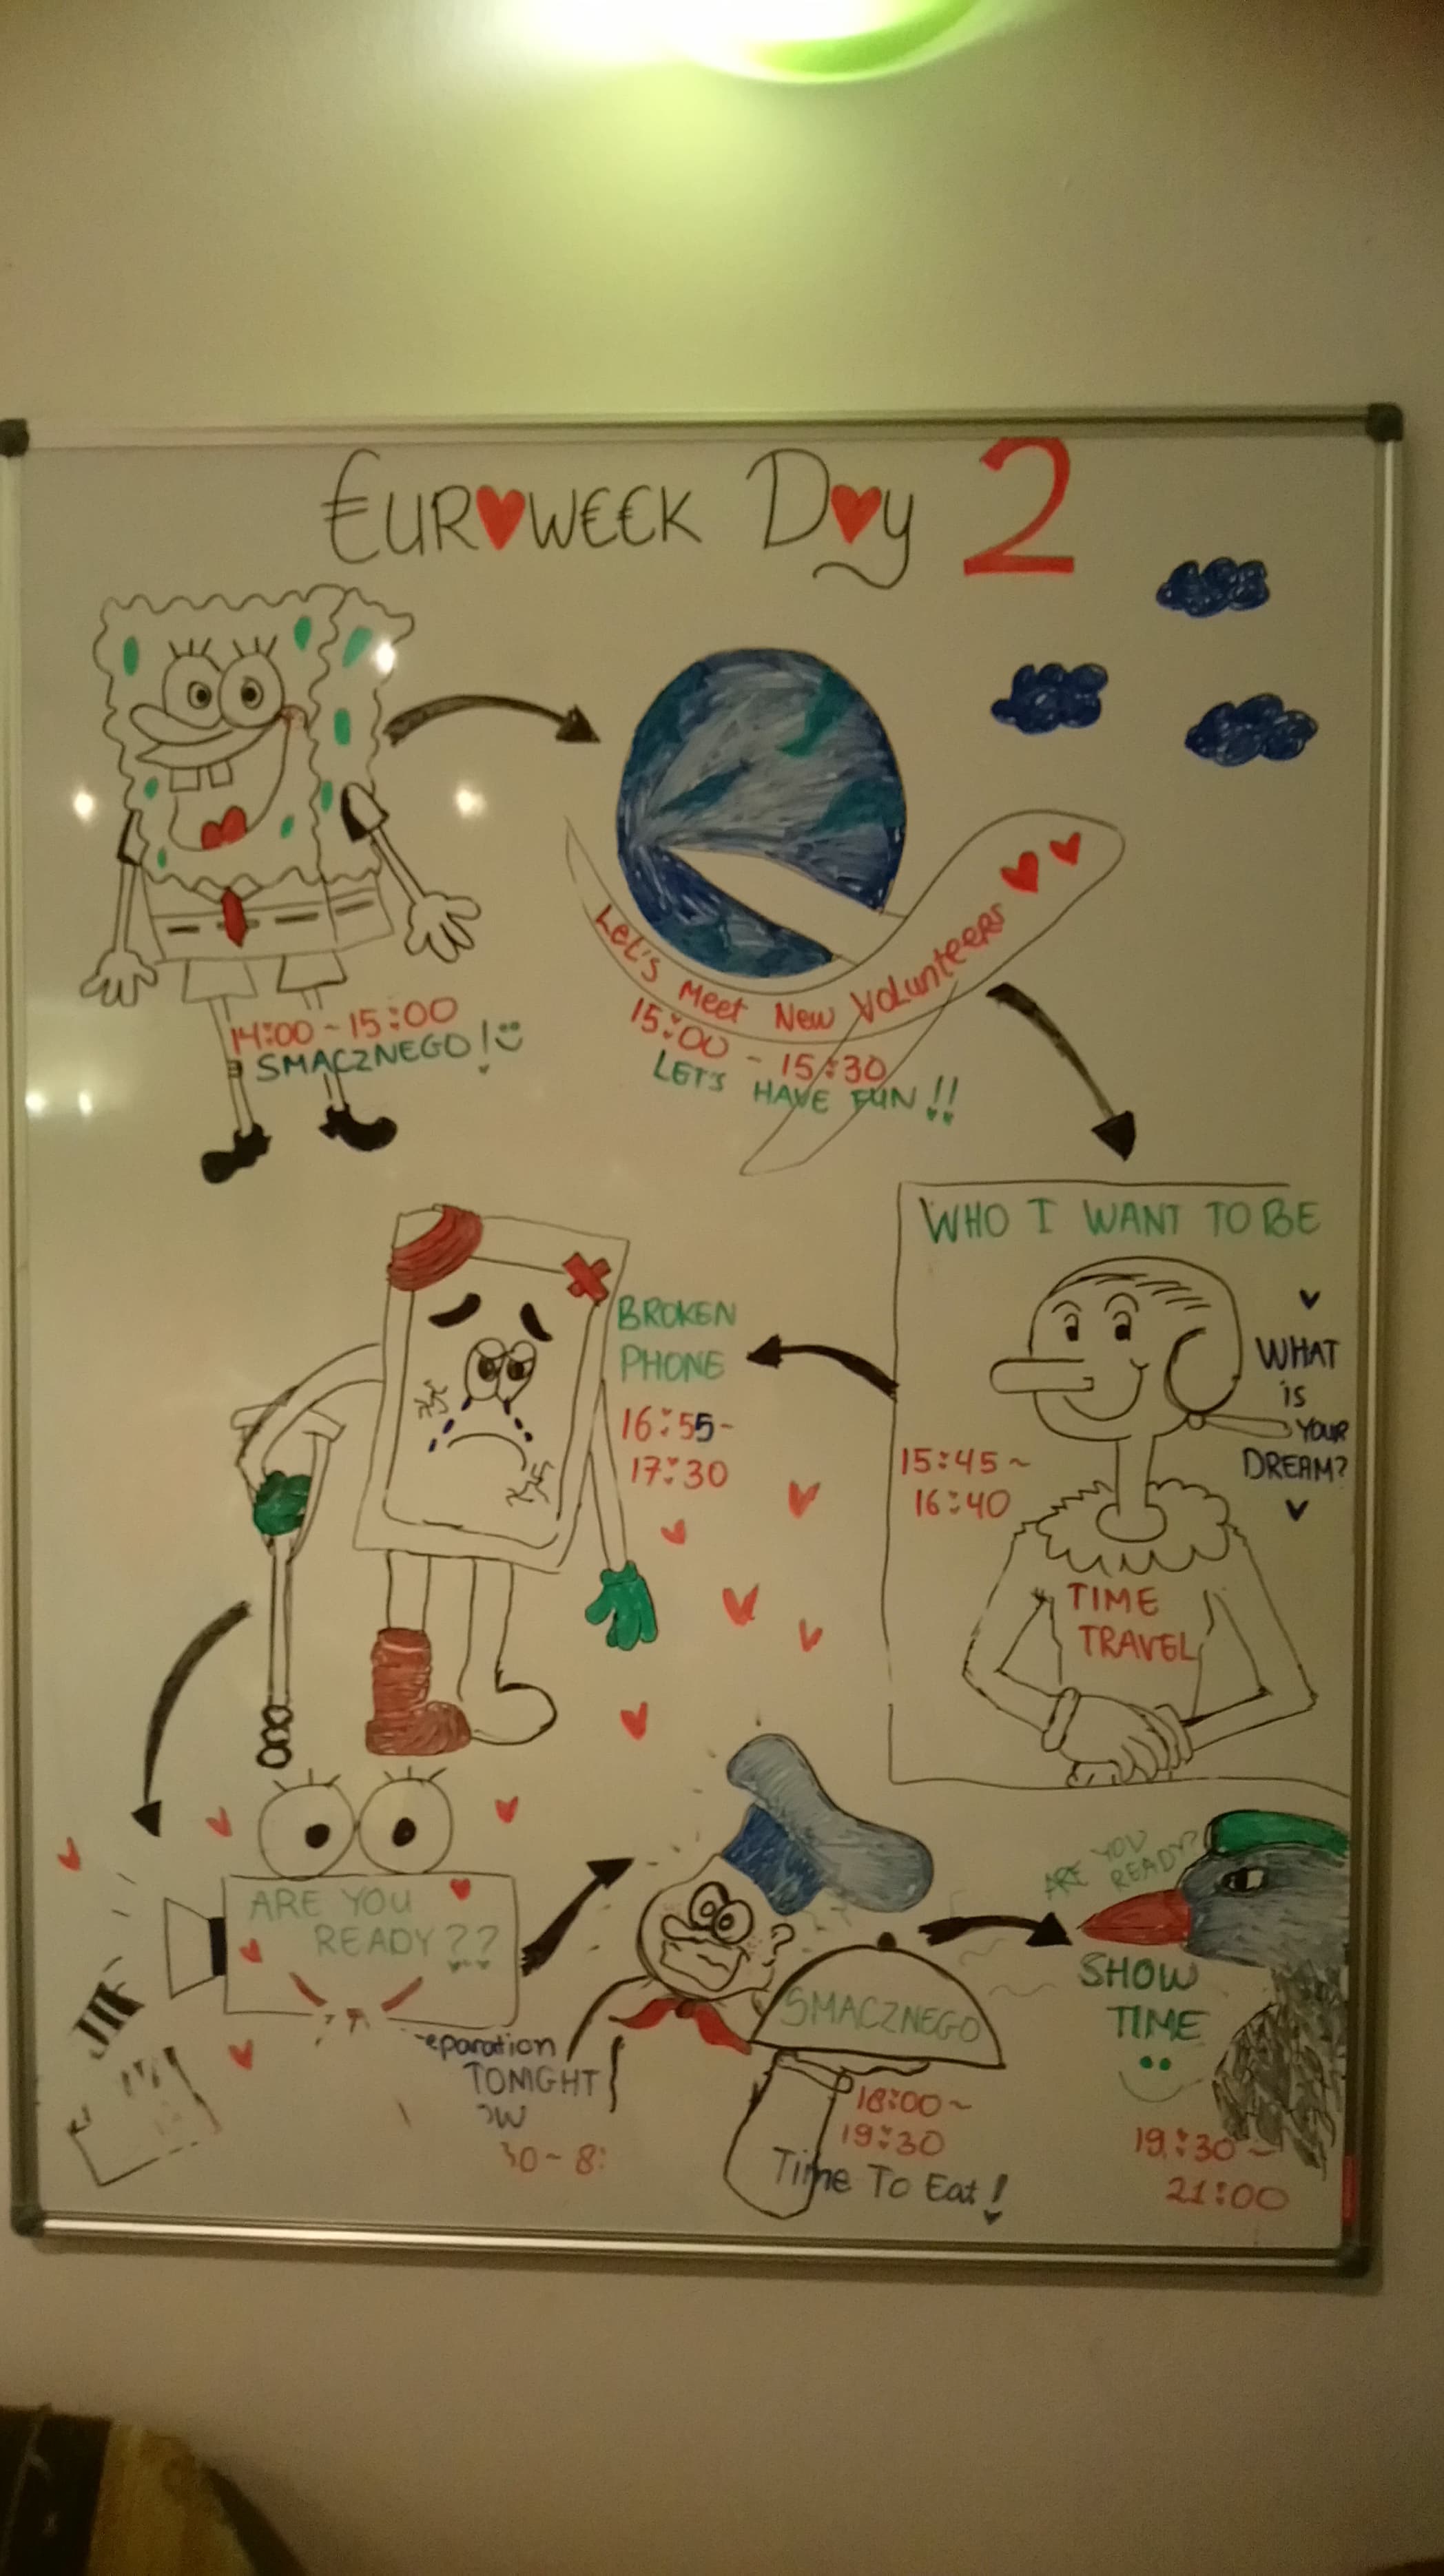 EUROWEEK DAY 2
14:00 ~ 15:00
SMACZNEGO!
Let's Meet New Volunteers
15:00 - 15:30
LET'S HAVE FUN!!
WHO I WANT TO BE
WHAT
is
YOUR
DREAM?
15:45 ~
16:40
TIME
TRAVEL
BROKEN
PHONE
16:55 ~
17:30
ARE YOU
READY??
eparation
TONIGHT
SMACZNEGO
18:00 ~
19:30
Time To Eat!
ARE YOU
READY?
SHOW
TIME
19:30 ~
21:00